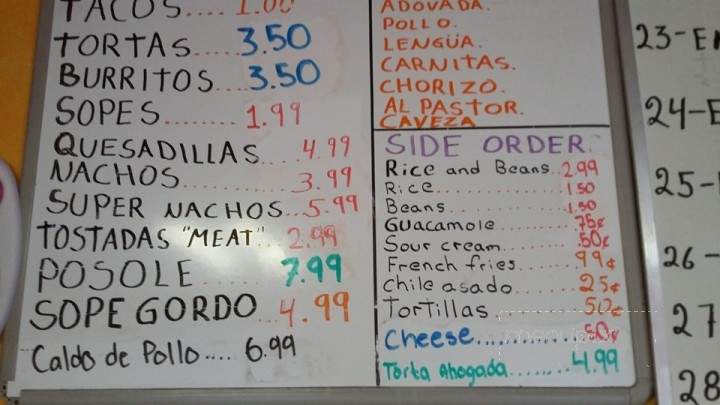 TACOS.... 1.00
TORTAS.... 3.50
BURRITOS.... 3.50
SOPES........ 1.99
QUESADILLAS.... 4.99
NACHOS.......... 3.99
SUPER NACHOS... 5.99
TOSTADAS "MEAT".. 2.99
POSOLE....... 7.99
SOPE GORDO... 4.99
Caldo de Pollo.... 6.99
ADOVADA.
POLLO.
LENGUA.
CARNITAS.
CHORIZO.
AL PASTOR.
CAVEZA
SIDE ORDER.
Rice and Beans.. 2.99
Rice............. 1.50
Beans............ 1.50
Guacamole........ .75¢
Sour cream....... .50¢
French fries...... .99¢
chile asado....... .25¢
Tortillas......... 50¢
Cheese............. .50¢
Torta Ahogada....... 4.99
23-E
24-E
25-
26-
27
28